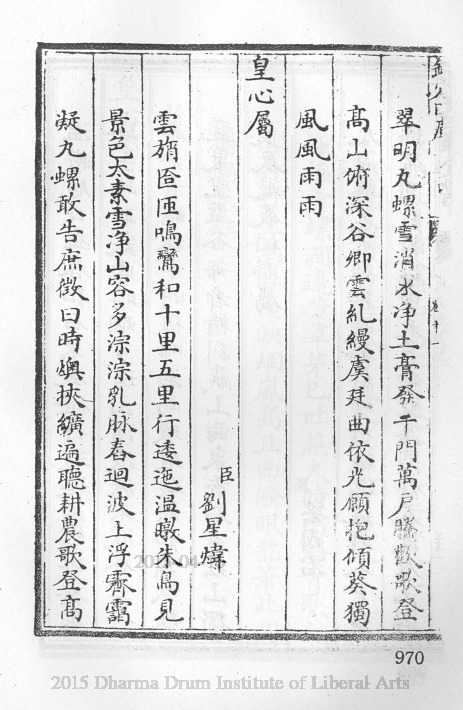 卷十一
翠明丸螺雪消水净土膏發千門萬戶騰歡歌登
高山俯深谷卿雲糺縵虞廷曲依光願抱傾葵獨
風風雨雨
皇心屬
臣劉星煒
雲旓匼匝鳴鸞和十里五里行逶迤溫暾朱鳥見
景色太素雪净山容多淙淙乳脉舂迴波上浮霽靄
凝丸螺敢告庶徵曰時燠挾纊遍聽耕農歌登高
970
2015 Dharma Drum Institute of Liberal Arts